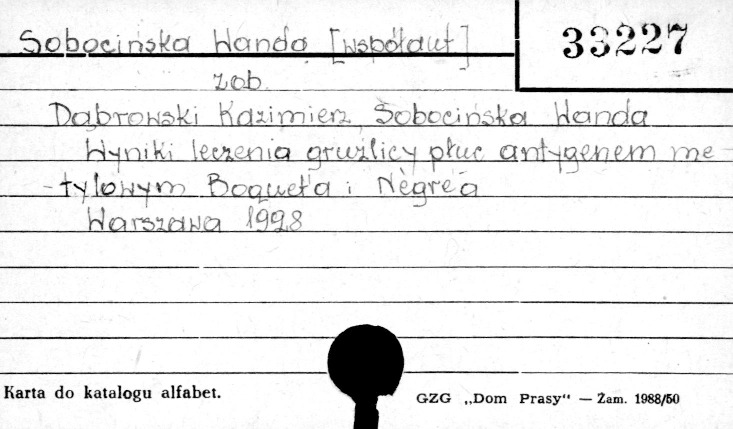 Sobocińska Wanda [współaut]
33227
zob.
Dąbrowski Kazimierz, Sobocińska Wanda
Wyniki leczenia gruźlicy płuc antygenem me-
-tylowym Boqueta i Nègre'a
Warszawa 1928
Karta do katalogu alfabet.
GZG „Dom Prasy“ — Zam. 1988/50